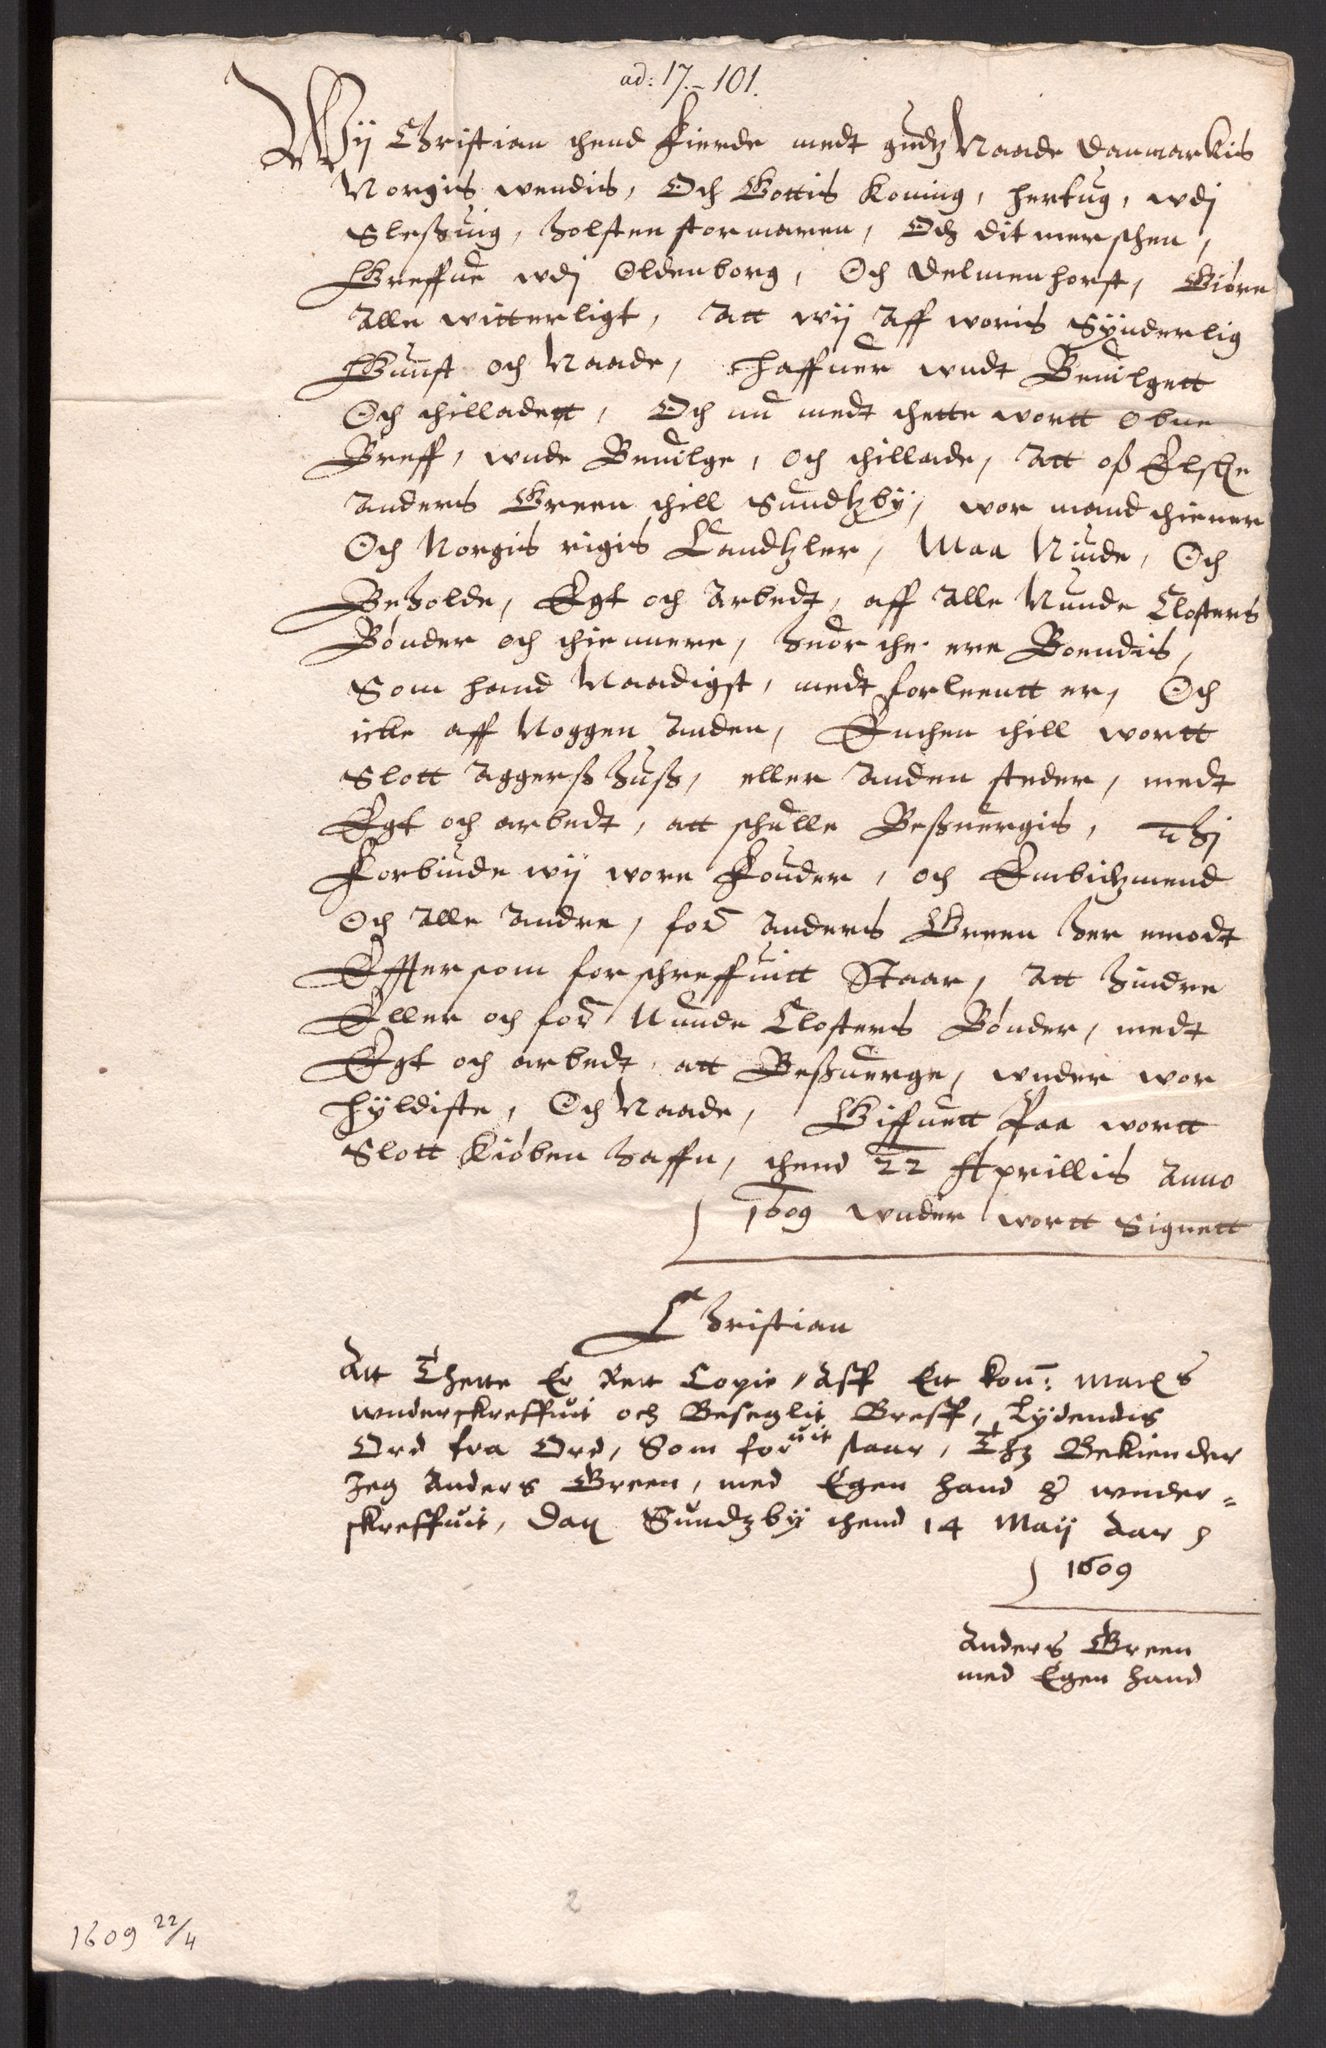 ad: 17.-101.
Wij Christian thend Fierde medt gudtz Naade Danmarkis
Norgis wendis, Och Gottis Koning, hertug, wdj
Sleßuig, Holsten stormaren, Och ditmerschen,
Greffue wdj Oldenborg, Och Delmenhorst, Giøre
Alle witterligt, Att wij Aff woris Synderlig
Gunst och Naade, haffuer wndt Beuilgett
Och thilladett, Och nu medt thette wortt obne
Breff, wnde Beuilge, och thillade, Att oß Elske
Anders Green thill Sundtzby, wor mand thiener
Och Norgis rigis Candtzler, Maa Niude, Och
Beholde, Egt och Arbedt, aff Alle Nunde Closters
Bønder och thiennere, huor the ere Boendis,
Som hand Naadigst, medt forleentt er, Och
icke aff Noggen Anden, Enthen thill wortt
Slott Aggerßhuß, eller Anden steder, medt
Egt och arbedt, att schulle Beßuergis, thj
Forbiude wij wore Fouder, och Embidtzmend
Och Alle Andre, for Anders Green her emodt
Effter som forschreffuitt Staar, Att hindre
Eller och for Nunde Closters Bønder, medt
Egt och arbedt att Beßuerge, wnder wor
hyldiste, Och Naade, Giffuett Paa wortt
Slott Kiøbenhaffn, thend 22 Aprillis Anno
1609 wnder wortt Signett
Christian
Att Thette Er Rett Copie, Aff Ett Kon: Mats
wnderskreffuit och Beseglit Breff, Lydendis
Ord fra Ord, Som foruit staar, Thz Bekiender
Jeg Anders Green, med Egen hand her wnder=
skreffuit, Dat Sundzby thend 14 Maij Aar
1609
Anders Green
med Egen hand
2
1609 22/4